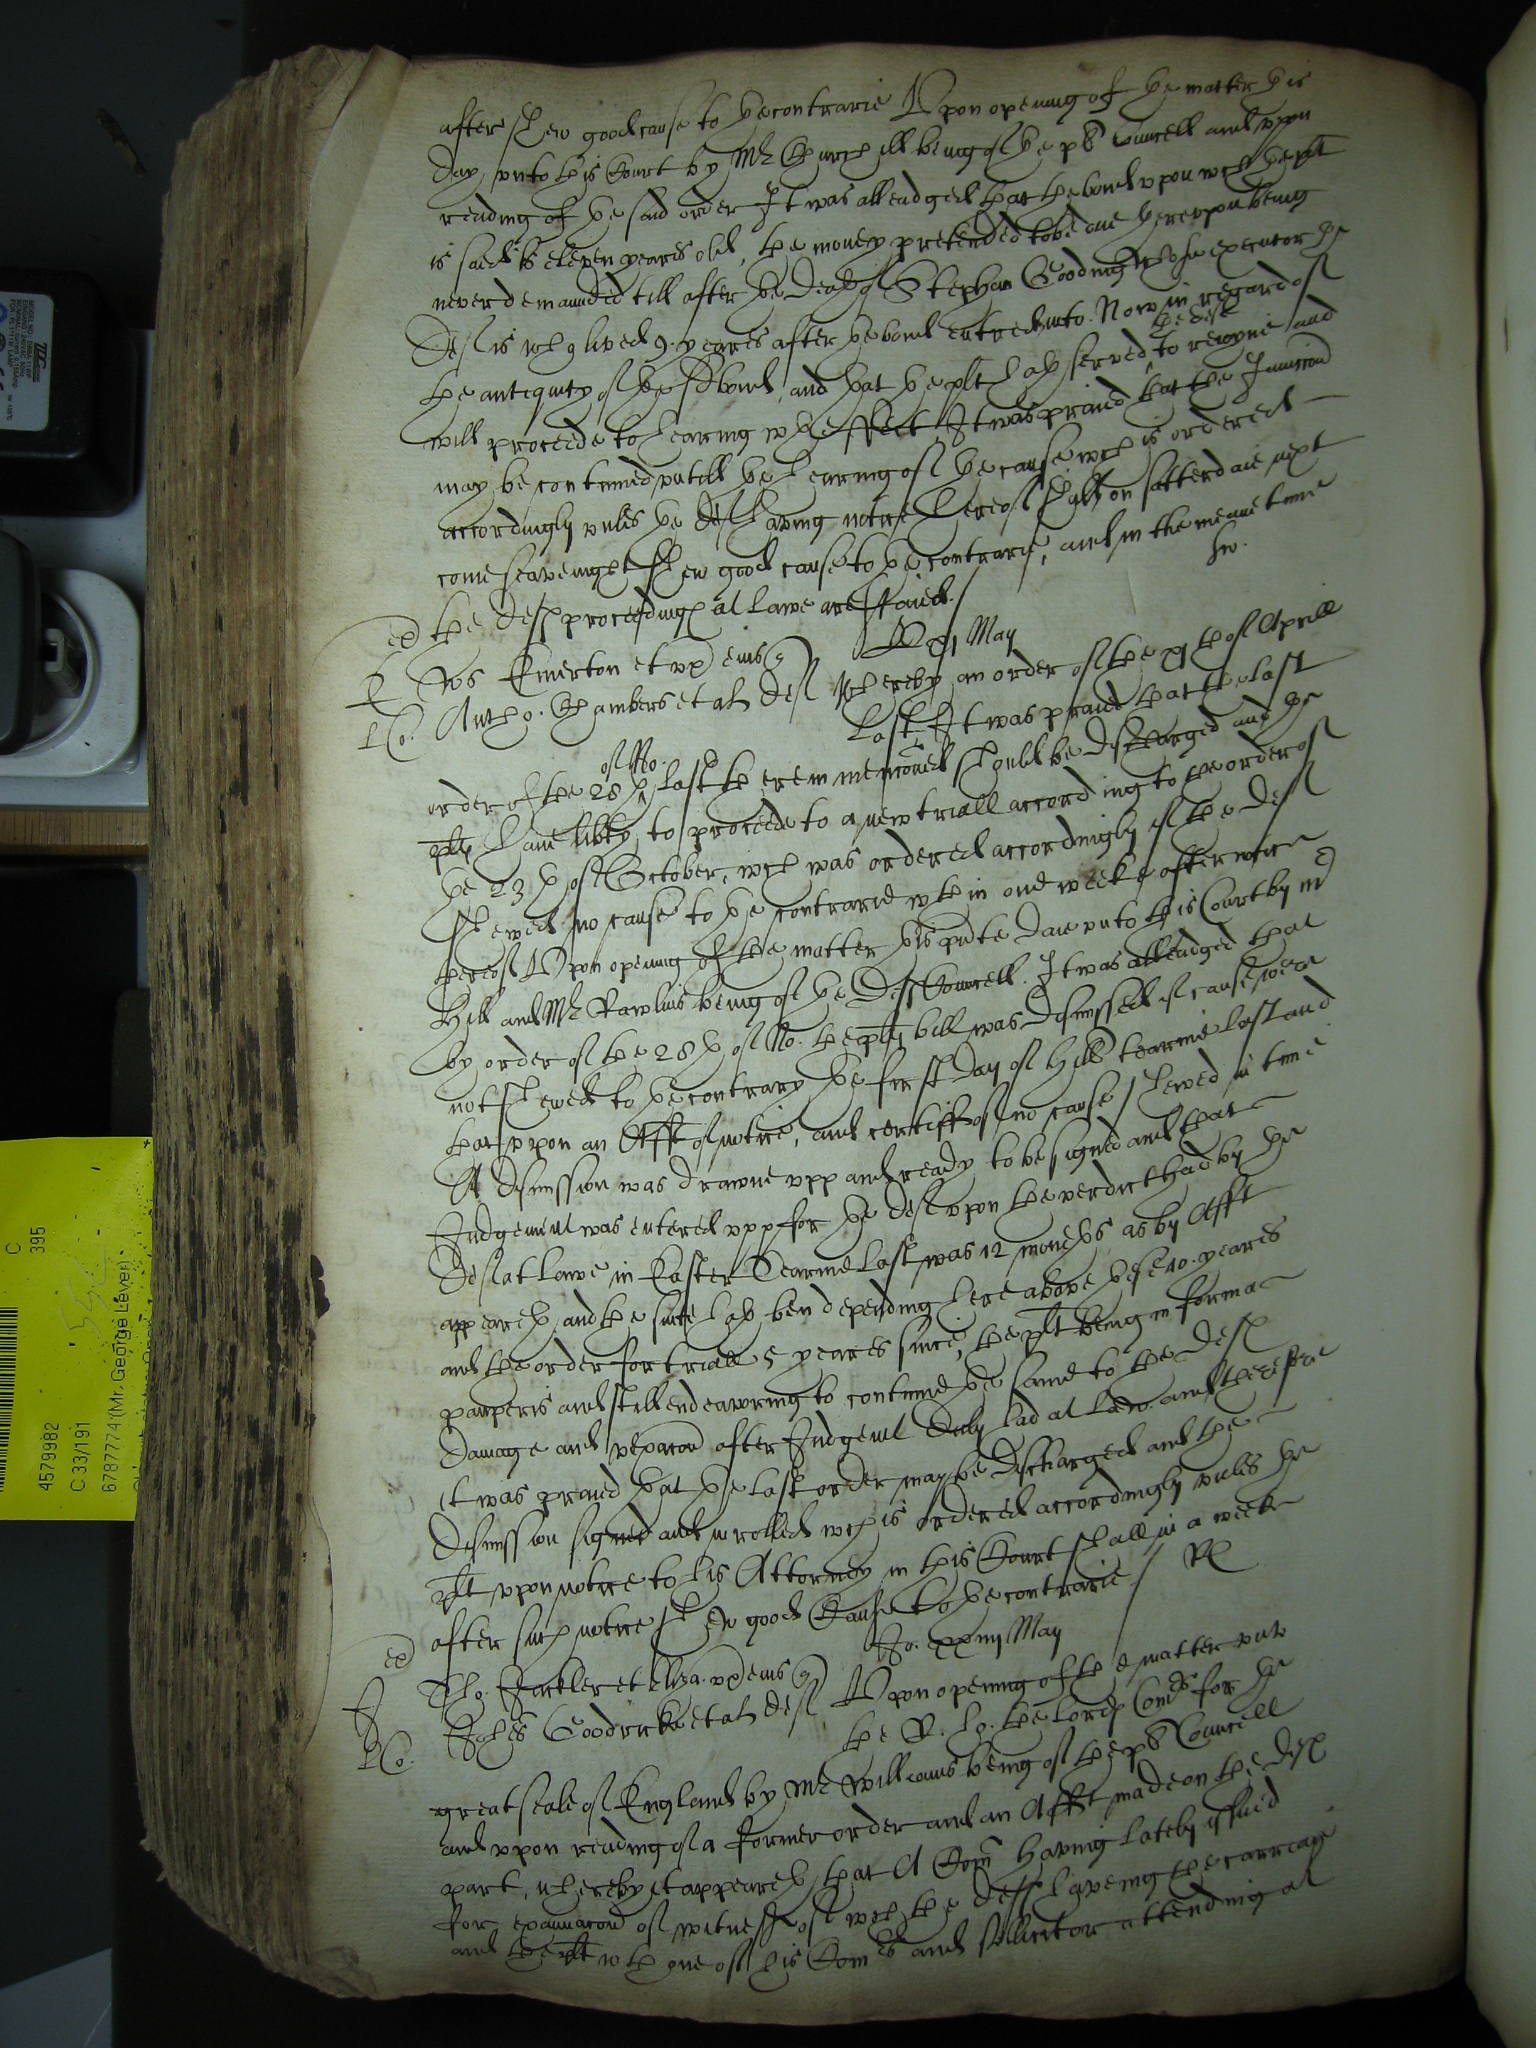 after shew good cause to the contrarie Upon opening of the matter this
day unto this Court by Mr Churchill being of the pls Councell and upon
reading of the said order It was alleadged that the bond upon wch the plt
is sued is eleven yeares old, the money pretended to be due thereupon being
never demaunded till after the death of Stephen Gooding whose executor the
Deft is who lived 9 yeares after the bond entred into. Now in regard of
the antiquity of the sd bond, and that the plt hath served the deft to rejoyne and
will proceede to hearing wth effect It was praied that the Iniunccion
may be continued untill the hearing of the cause wch is ordered
accordingly unles the deft having notice hereof shall on satterdaie next
come seavenight shew good cause to the contrary, and in the meane time
the defts proceedings at lawe are staied.
Emerton et ux eius
Antho. Chambers et al deft
May
Whereby an order of the of Aprill
last It was praied that the last
order of the 28th of No. last therein menconed should be discharged and the
plts have libty to proceede to a new triall according to the order of
the 23th of October, wch was ordered accordingly if the deft
shewed no cause to the contrarie wthin one weeke after notice
thereof Upon opening of the matter this pnte daie unto this Court by Mr
Hill and Mr Rawlins being of the defts Councell. It was alleadged that
by order of the 28th of No. the plts bill was dismissed if cause were
not shewed to the contrary the first day of Hill tearme last and
that upon an Afft of notice, and certiff of no cause shewed in time
A dismission was drawne upp and ready to be signed and that
Iudgement was entered upp for the deft upon the verdict had by the
deft at lawe in Easter Tearme last was 12 moneths as by Afft
appeareth and the suite hath ben depending here above these 10 yeares
and the order for triall 5 yeares since, the plt being in forma
pauperis and still endeavoring to continue the same to the defts
damage and vexacon after Iudgemt duly had at law. and therefore
it was praied that the last order may be discharged and the
dismission signed and inrolled wch is ordered accordingly unles the
plt upon notice to his Attorney in this Court shall in a weeke
after such notice shew good Cause to the contrarie
Jo. xxiiii May
Tho. et Eliza. ux eius
Goodricke et al deft
Upon opening of the matter unto
the R. ho. the lords Comrs for the
great seale of England by Mr Williams being of the pls Councell
and upon reading of a former order and an Afft made on the defts
part, whereby it appeareth that A Comn having lately issued
for examinacon of witnesses of wch the defts haveing the carriage
and the plt wth one of his Comrs and sollicitor attending at
C
395
4579982
C 33/191
6787774 (Mr, George Lever)